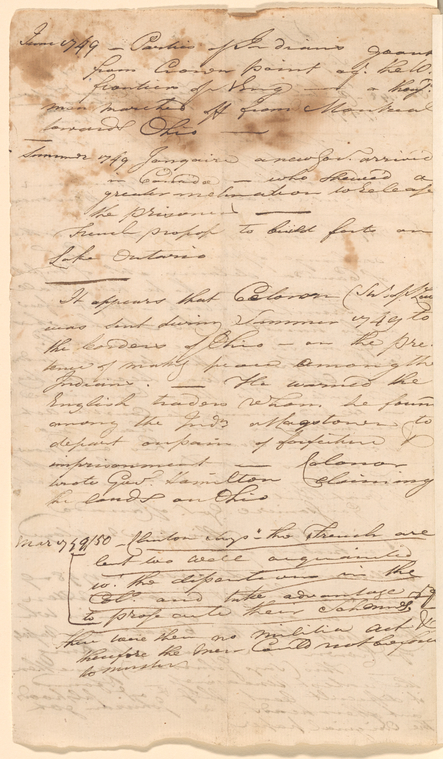 June 1749 — Parties of Indians
from Crown point agt. the
frontier of N Eng — a thous
men marched off from Montreal
towards Ohio —
Summer 1749 Jonquiere a new Gov. arrived
in Canada — who shewed a
greater inclination to release
the prisoners —
French propose to build forts on
Lake Ontario
It appears that Celoron
was sent during Summer 1749 to
the borders of Ohio — on the pre
tence of making peace among the
Indians. — He warned the
English traders whom he found
among the Inds at Logstown to
depart on pain of forfeiture &
imprisonment — Celoron
wrote Gov. Hamilton claiming
the lands on Ohio
1749/50 — Clinton says "the French are
but too well acquainted
wt. the disputes in the
Coly and take advantage of
to prosecute their schemes &
there were then no militia act &
therefore the men could not be
to muster